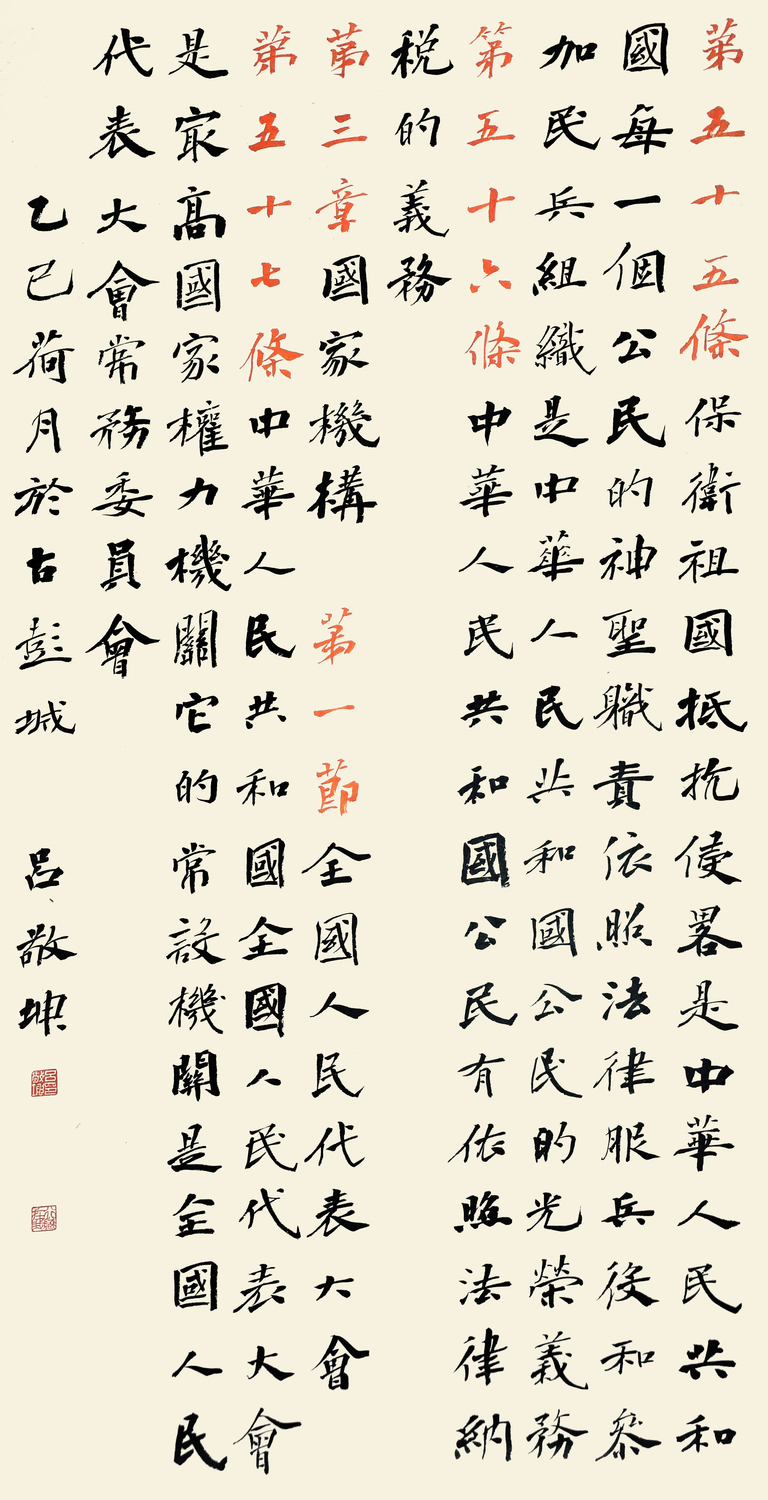 第五十五條保衛祖國抵抗侵畧是中華人民共和
國每一個公民的神聖職責依照法律服兵役和參
加民兵組織是中華人民共和國公民的光榮義務
第五十六條中華人民共和國公民有依照法律納
稅的義務
第三章國家機構 第一節全國人民代表大會
第五十七條中華人民共和國全國人民代表大會
是冣高國家權力機關它的常設機關是全國人民
代表大會常務委員會
乙巳荷月於古彭城 呂敬坤